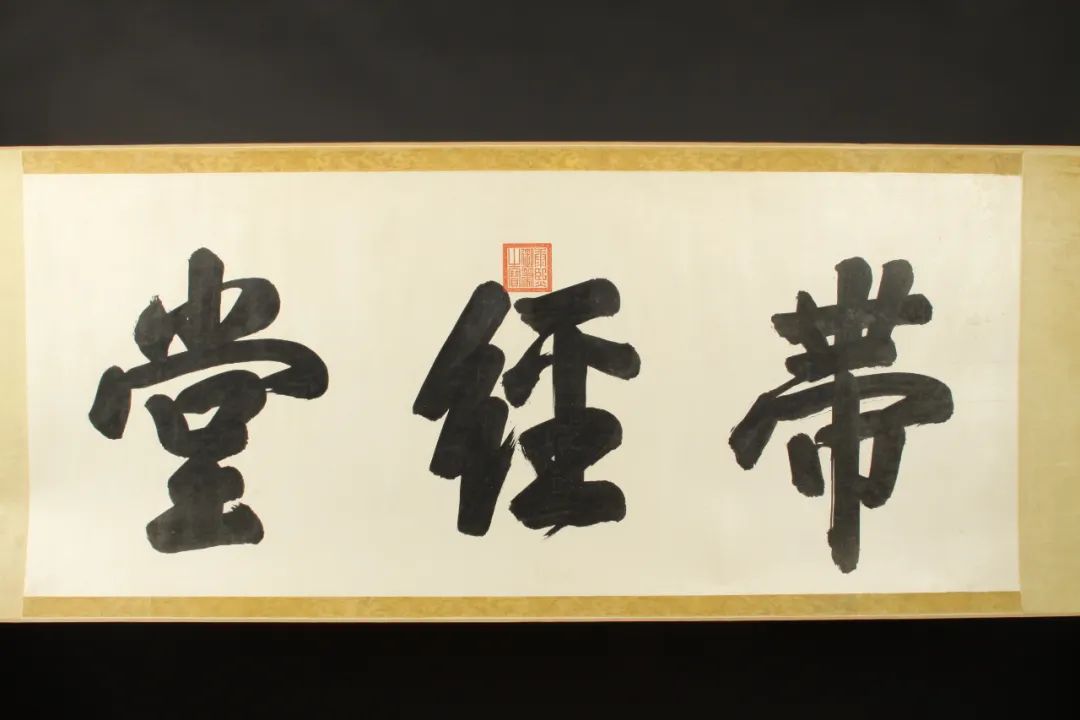 帶經堂
康熙御筆之寶